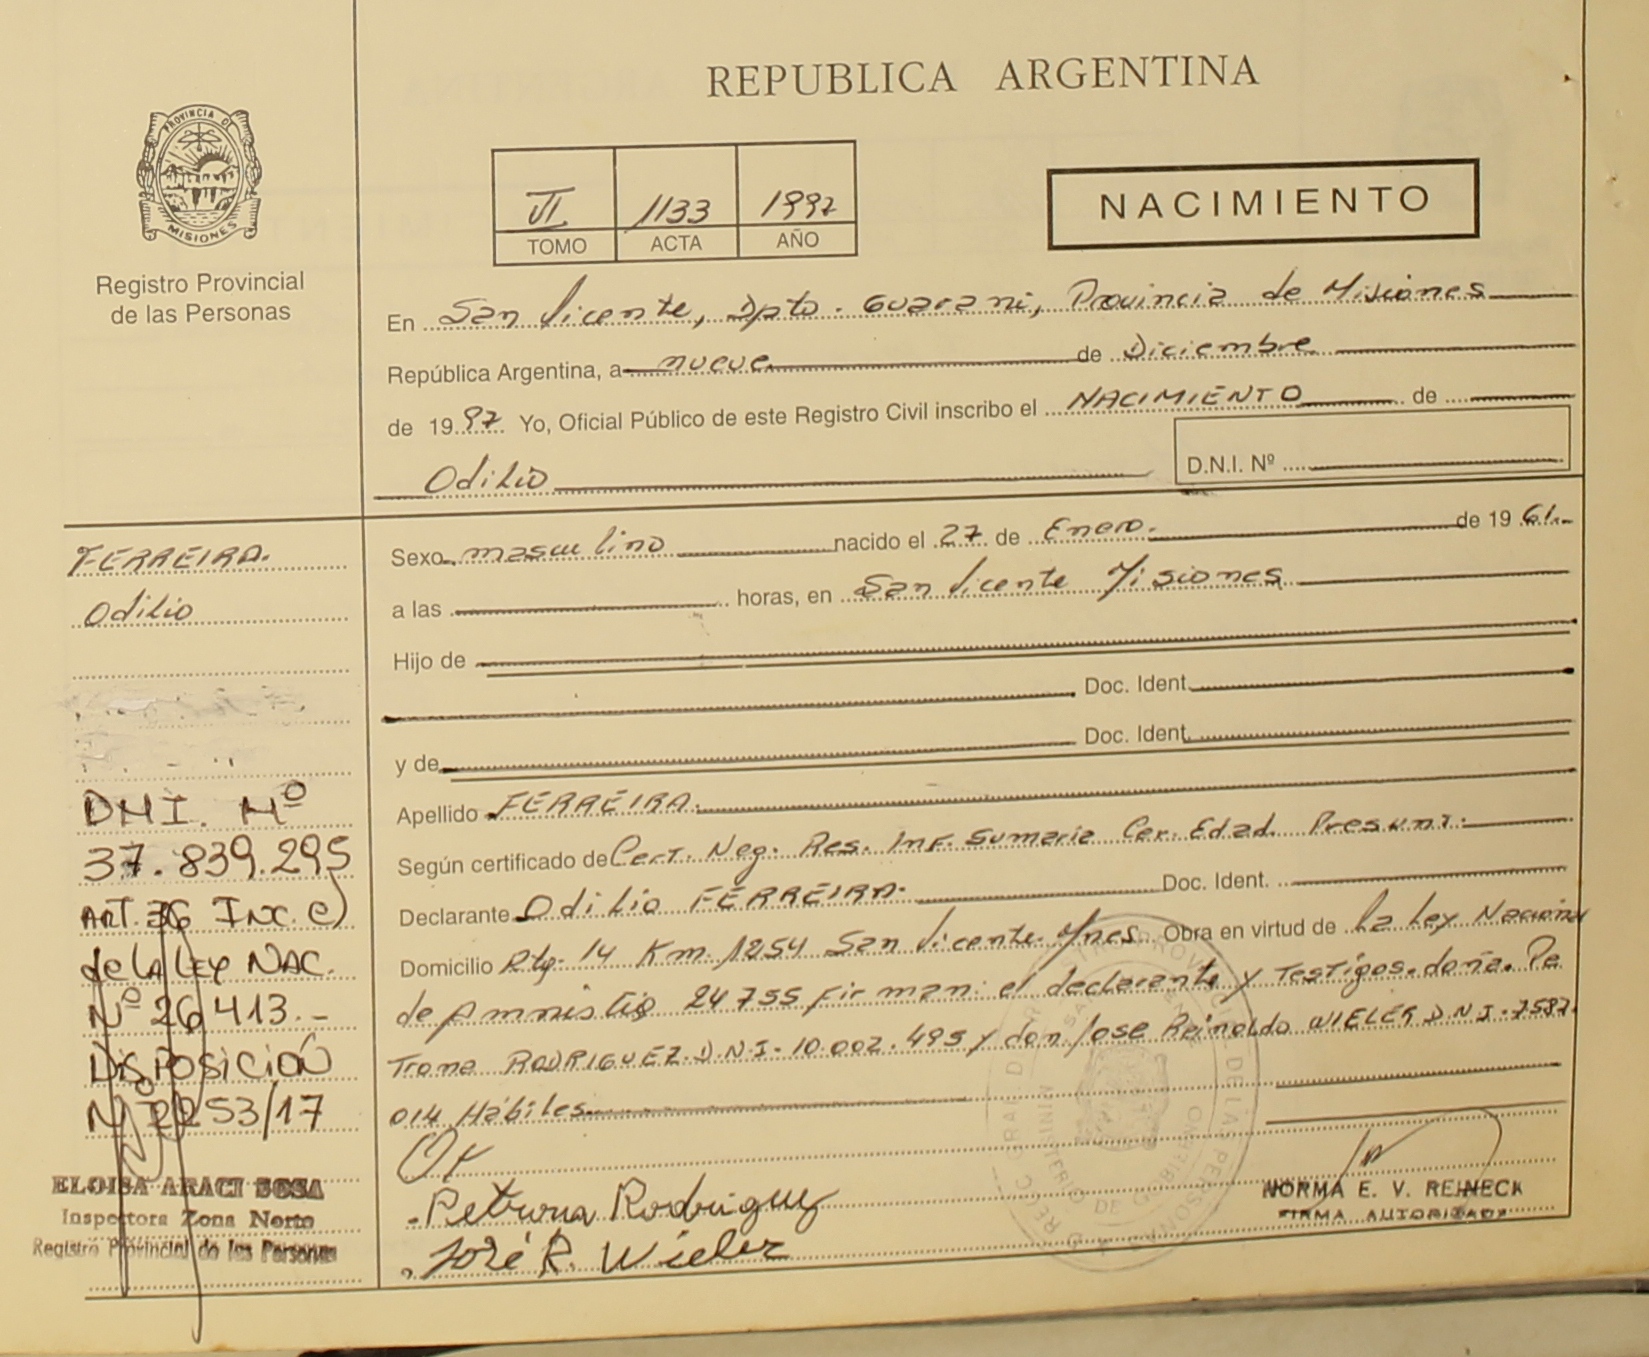 REPUBLICA ARGENTINA
PROVINCIA DE
MISIONES
Registro Provincial
de las Personas
VI 1133 1997
TOMO ACTA AÑO
NACIMIENTO
En San Vicente, Dpto. Guarani, Provincia de Misiones
República Argentina, a nueve de Diciembre
de 1997 Yo, Oficial Público de este Registro Civil inscribo el NACIMIENTO de
Odilio D.N.I. Nº
FERREIRA.
Odilio
DNI. Nº
37.839.295
ART. 36 INC. C)
de LA LEY NAC.
Nº 26413.-
DISPOSICIÓN
Nº 2253/17
ELOISA ARACI SOSA
Inspectora Zona Norte
Registro Provincial de las Personas
Sexo masculino nacido el 27 de Enero. de 1961.-
a las horas, en San Vicente Misiones
Hijo de
Doc. Ident.
y de Doc. Ident.
Apellido FERREIRA.
Según certificado de Cert. Neg. Res. Inf. Sumaria Cer. Edad. Presunt.
Declarante Odilio FERREIRA. Doc. Ident.
Domicilio Rtg. 14 Km. 1254 San Vicente Mnes. Obra en virtud de la Ley Nacional
de Amnistia 24755 Firman: el declarante y Testigos. doña. Pe
Trona RODRIGUEZ. D.N.I. 10.002.495 y don Jose Reinaldo WIELER D.N.I. 7587.
014 Hábiles
OF
Petrona Rodriguez
José R. Wieler
NORMA E. V. REINECK
FIRMA AUTORIZADA